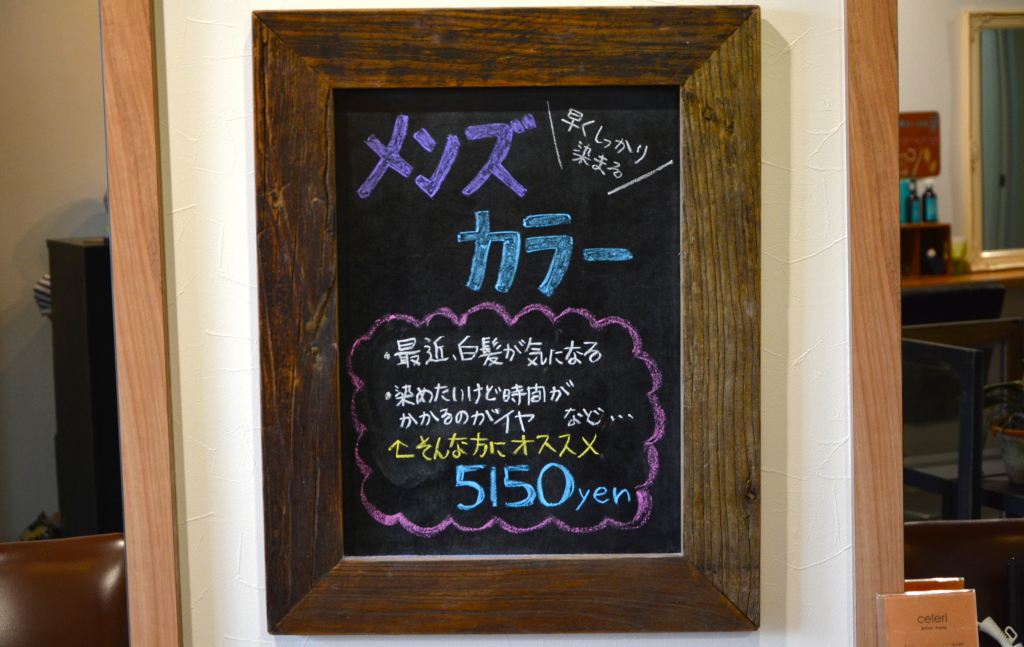 メンズ
早くしっかり
染まる
カラー
・最近、白髪が気になる
・染めたいけど時間が
かかるのがイヤ など...
↑そんな方にオススメ
5150yen
celeri